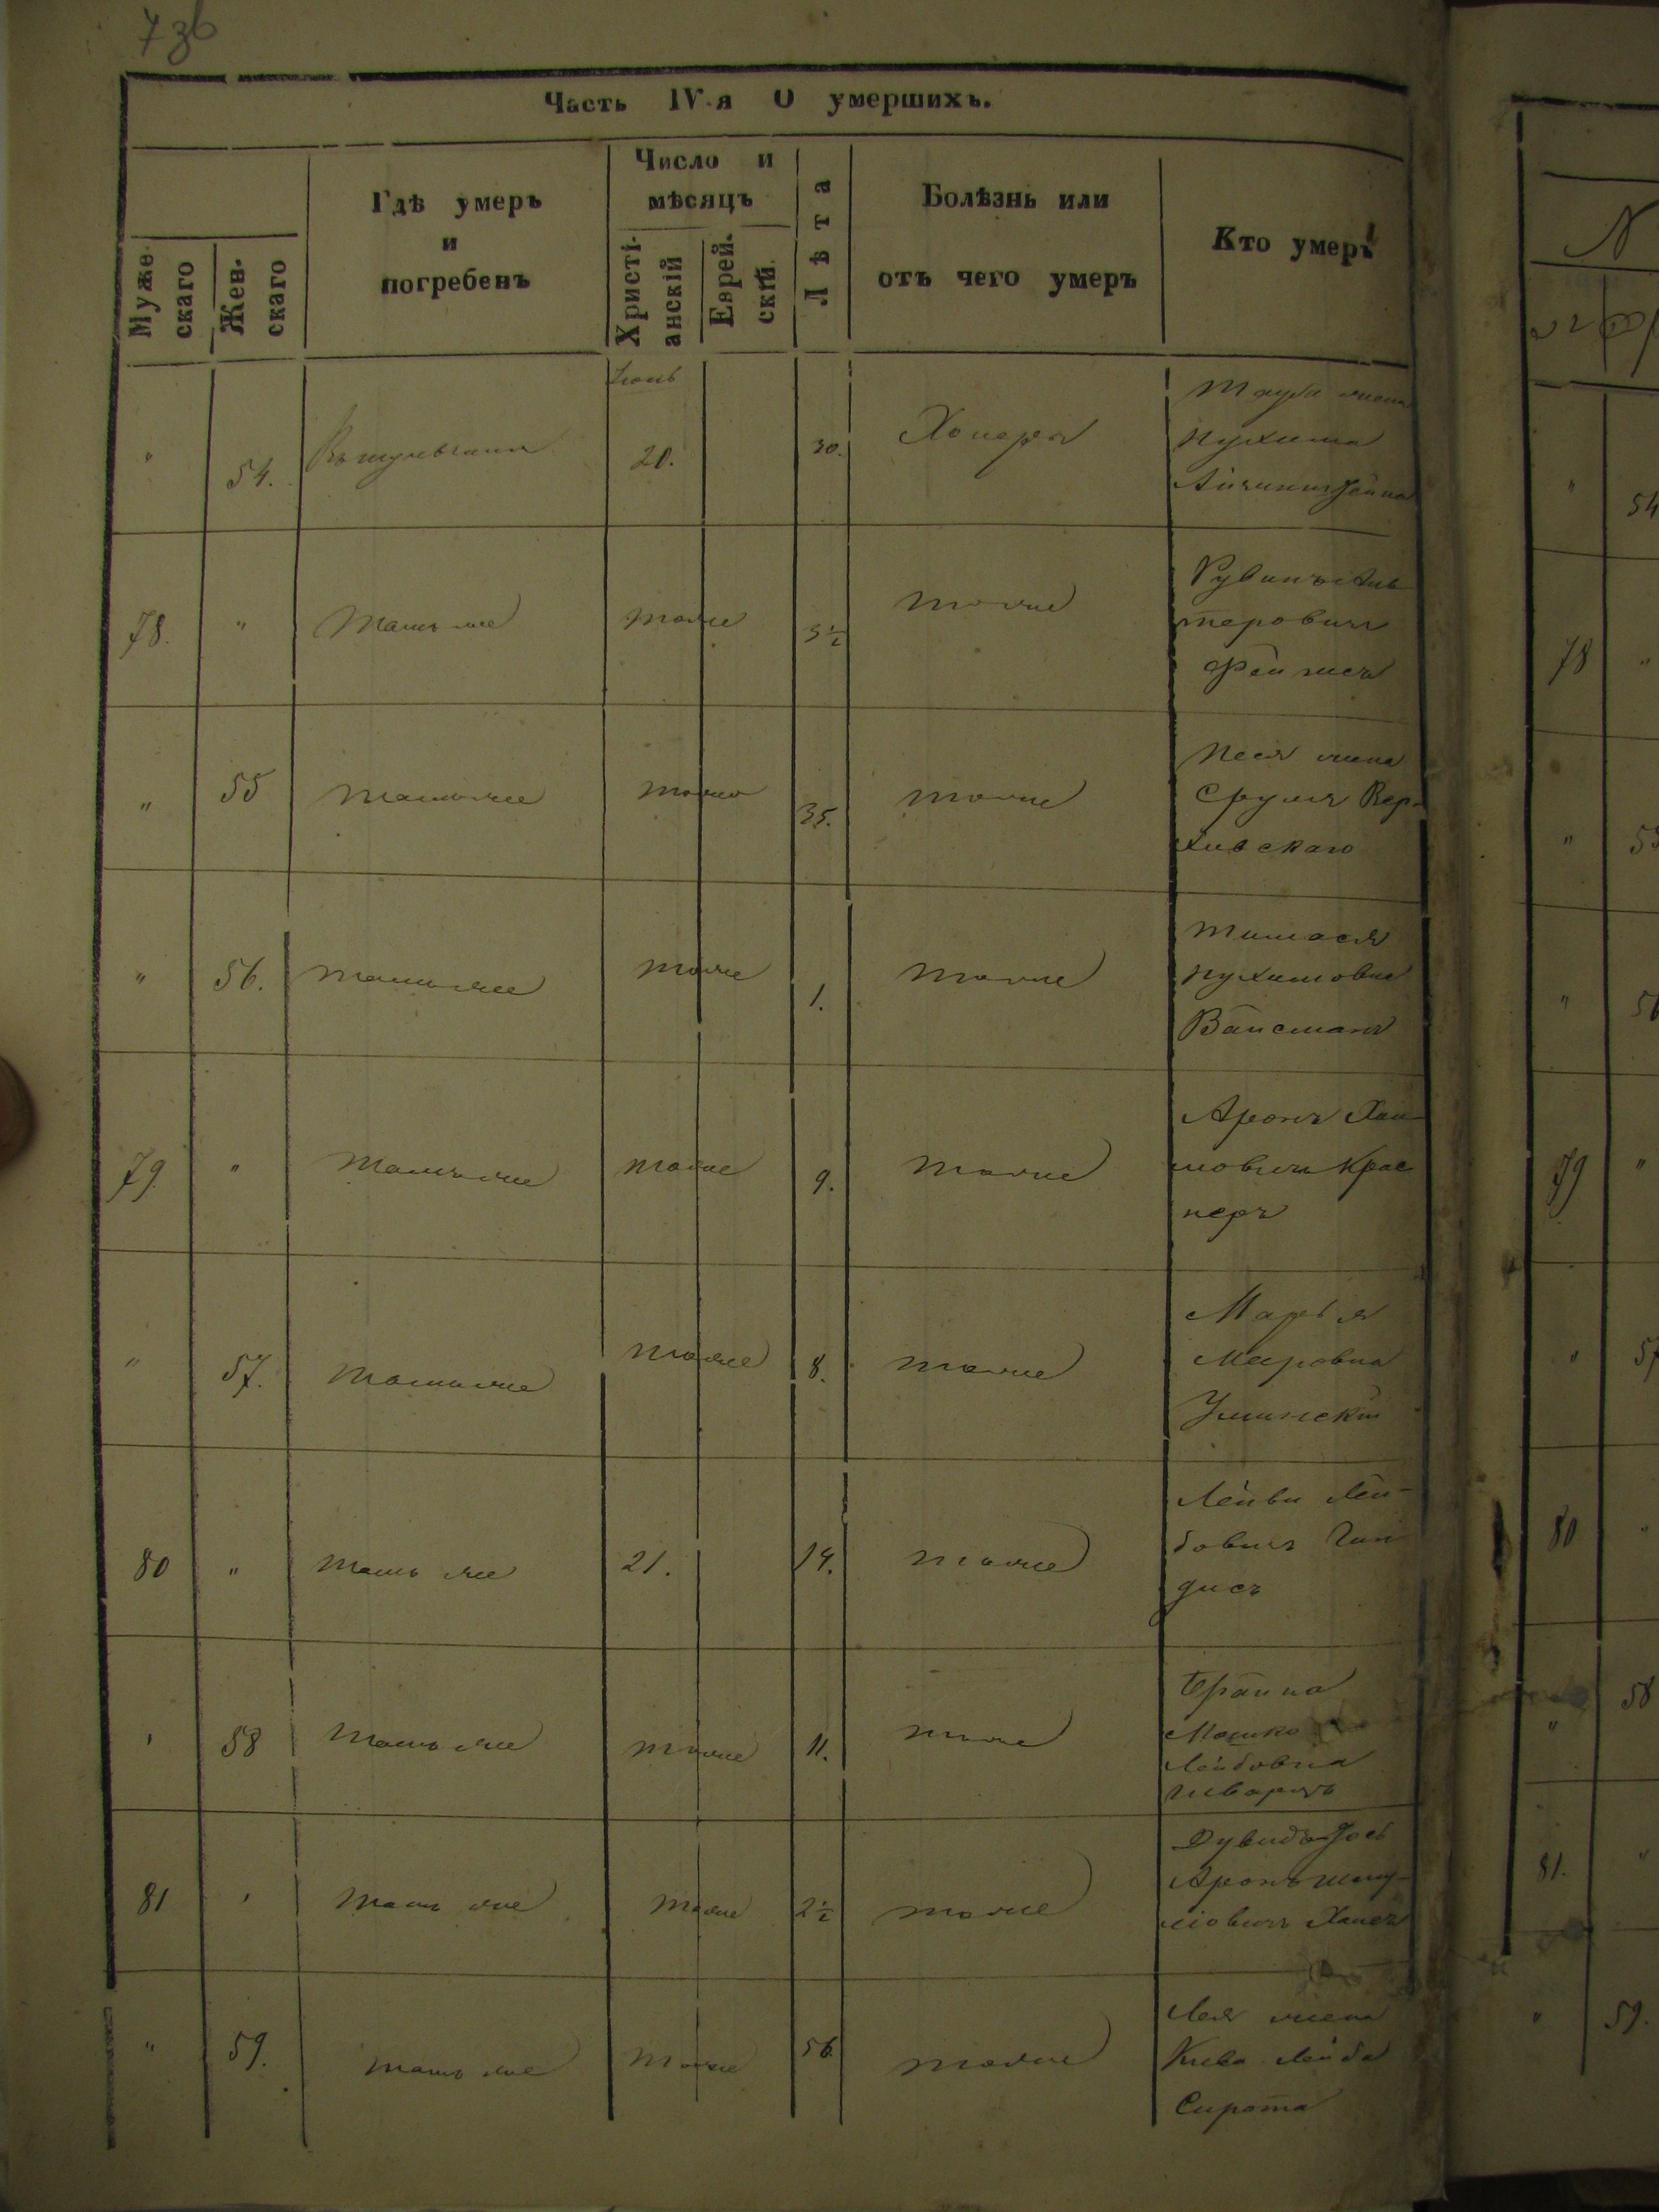 736
Часть IV-я О умершихъ.
Муже-
скаго
Жен-
скаго
Гдѣ умеръ
и
погребенъ
Число и
мѣсяцъ
Христі-
анскій
Еврей-
скій
Лѣта
Болѣзнь или
отъ чего умеръ
Кто умеръ
Іюнь
" 54. 20. 30. Холера
жена
Нухима
78. " тамъ же тоже 3½ тоже
Рувинъ
теровичъ
" 55 тамъ же тоже 35. тоже
Песя жена
Сруля Вер-
хивскаго
" 56. тамъ же тоже 1. тоже
Нухимовна
Вайсманъ
79. " тамъ же тоже 9. тоже
Аронъ Хаи
мовичъ Крас
неръ
" 57. тамъ же тоже 8. тоже
Марья
Меировна
Уманскій
80 " тамъ же 21. 14. тоже
Лейба Лей-
бовичъ
дисъ
" 58 тамъ же тоже 11. тоже
Мошко
Лейбовна
Шварцъ
81 " тамъ же тоже 2½ тоже
Дувидъ Іось
Аронъ Шму-
ліовичъ
" 59. тамъ же тоже 56 тоже
Лея жена
Кива Лейба
Сирота
" 54
78 "
"
"
79 "
"
80 "
" 58
81. "
" 59.